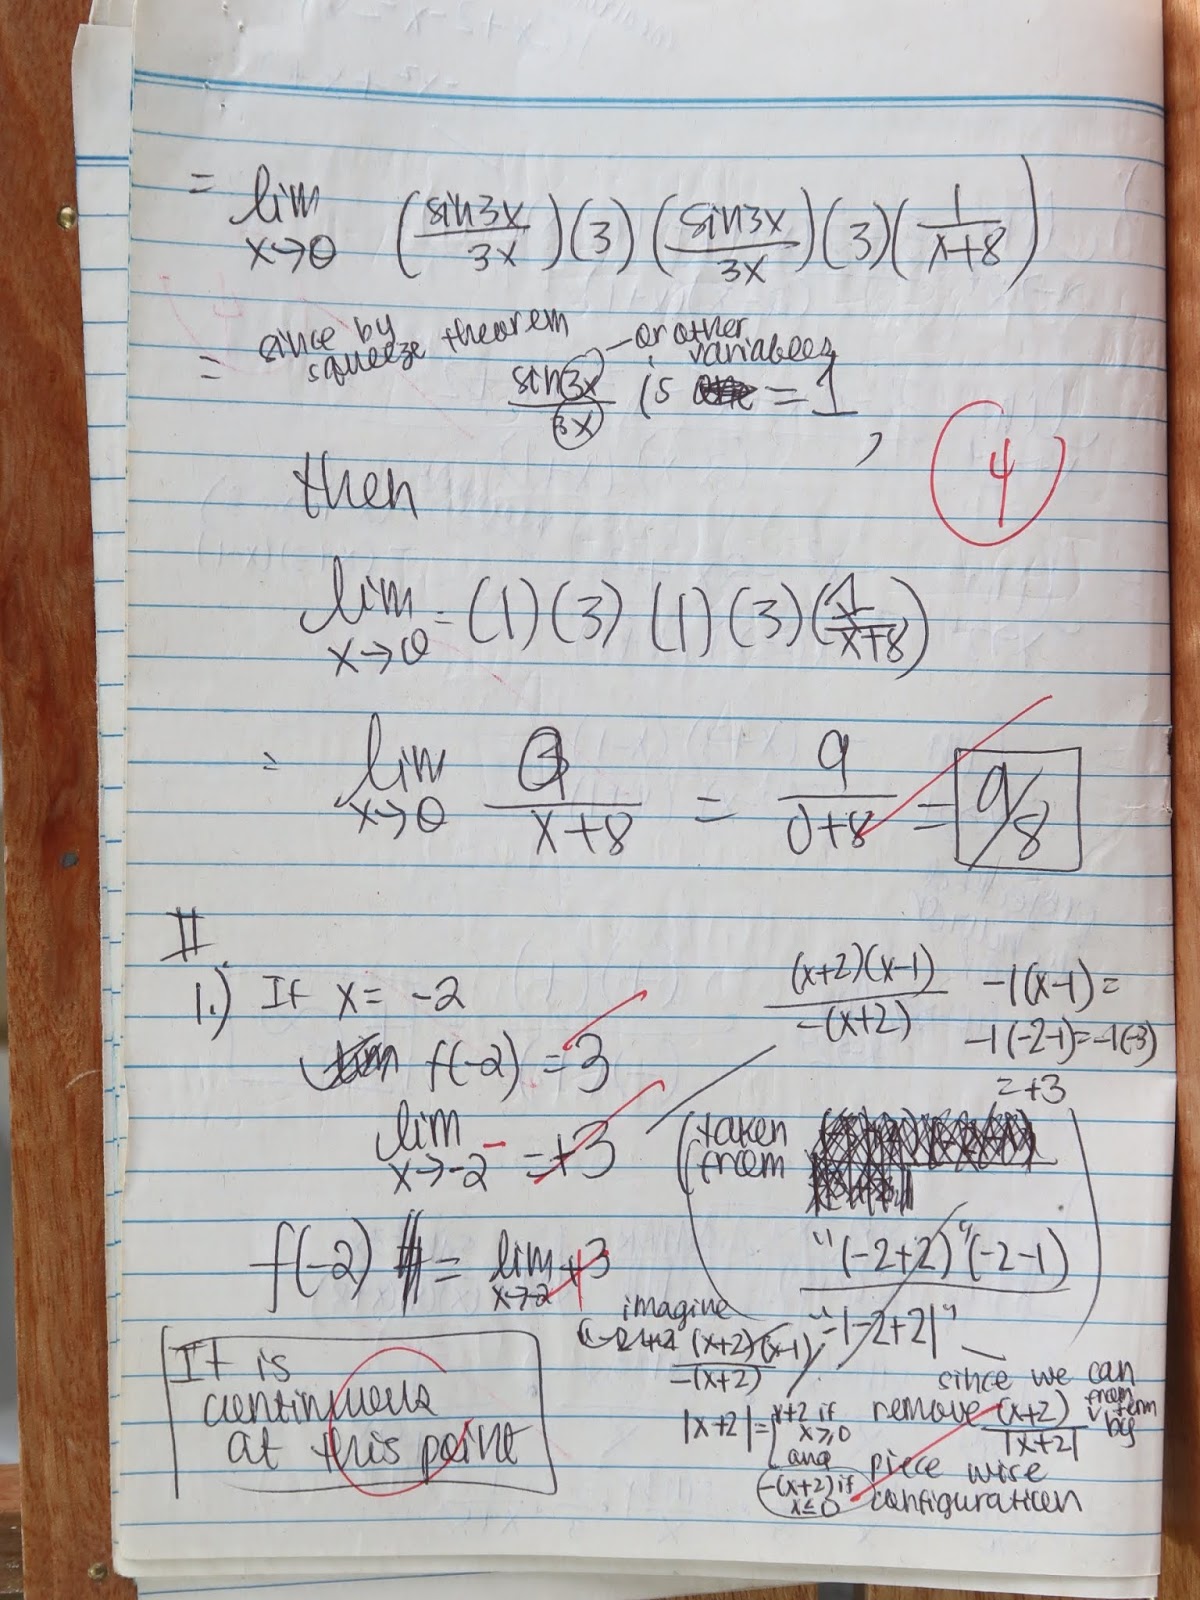 = lim x→0 (sin3x/3x)(3)(sin3x/3x)(3)(1/x+8)
= since by squeeze theorem sin3x/3x is = 1,
or other variables
4
then
lim x→0 = (1)(3)(1)(3)(1/x+8)
= lim x→0 9/x+8 = 9/0+8 = 9/8
II.
1.) If x = -2
f(-2) = 3
lim x→-2⁻ = +3
f(-2) = lim x→-2 +3
It is
continuous
at this point
(x+2)(x-1)/-(x+2)
-1(x-1) =
-1(-2-1) = -1(-3)
= +3
(taken
from
"(-2+2)"(-2-1)/"-|-2+2|")
imagine
(x+2)(x-1)/-(x+2)
|x+2| = { x+2 if x≥0
and
-(x+2) if x≤0
since we can
remove (x+2)/|x+2| from term by
piece wise
configuration